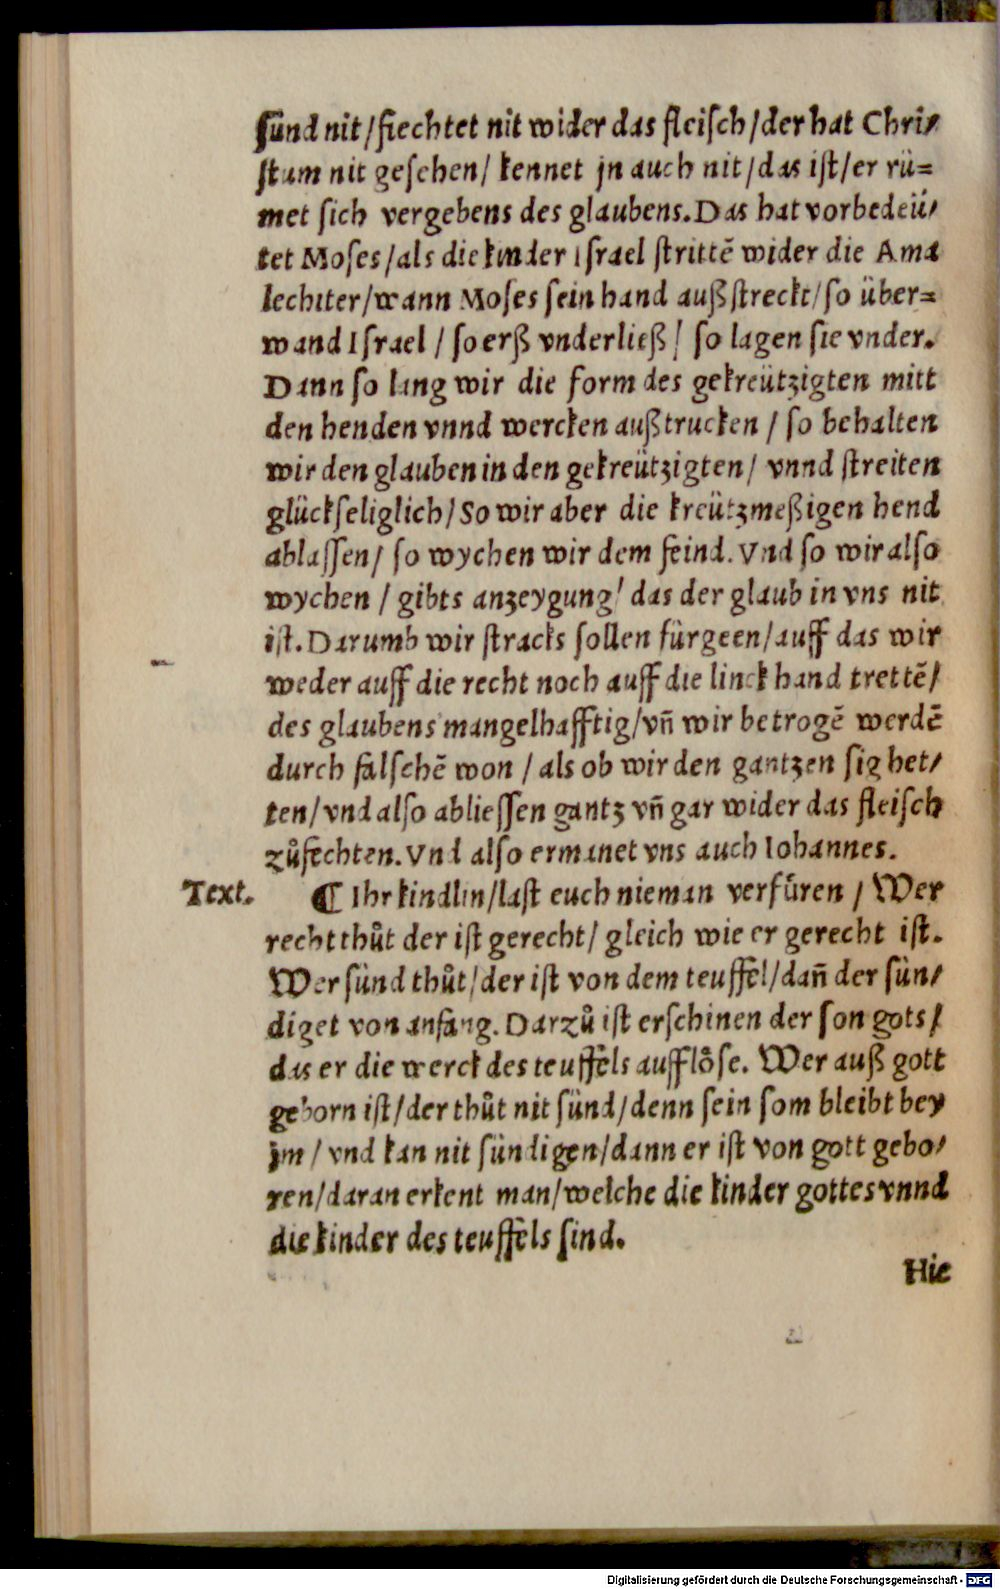 sünd nit/fiechtet nit wider das fleisch/der hat Chri/
stum nit gesehen/ kennet jn auch nit/das ist/er rü=
met sich vergebens des glaubens.Das hat vorbedeü/
tet Moses/als die kinder Israel strittē wider die Ama
lechiter/wann Moses sein hand außstreckt/so über=
wand Israel / so erß vnderließ/ so lagen sie vnder.
Dann so lang wir die form des gekreützigten mitt
den henden vnnd wercken außtrucken / so behalten
wir den glauben in den gekreützigten/ vnnd streiten
glückseliglich/So wir aber die kreützmeßigen hend
ablassen/ so wychen wir dem feind.Vnd so wir also
wychen / gibts anzeygung/ das der glaub in vns nit
ist.Darumb wir stracks sollen fürgeen/auff das wir
weder auff die recht noch auff die linck hand trettē/
des glaubens mangelhafftig/vn̄ wir betrogē werdē
durch falschē won / als ob wir den gantzen sig het/
ten/vnd also abliessen gantz vn̄ gar wider das fleisch
zůfechten.Vnd also ermanet vns auch Iohannes.
Text. ¶ Ihr kindlin/last euch nieman verfüren / Wer
recht thůt der ist gerecht/ gleich wie er gerecht ist.
Wer sünd thůt/der ist von dem teuffel/dan̄ der sün/
diget von anfang.Darzů ist erschinen der son gots/
das er die werck des teuffels aufflöse. Wer auß gott
geborn ist/der thůt nit sünd/denn sein som bleibt bey
jm / vnd kan nit sündigen/dann er ist von gott gebo/
ren/daran erkent man/welche die kinder gottes vnnd
die kinder des teuffels sind.
Hie
Digitalisierung gefördert durch die Deutsche Forschungsgemeinschaft - DFG